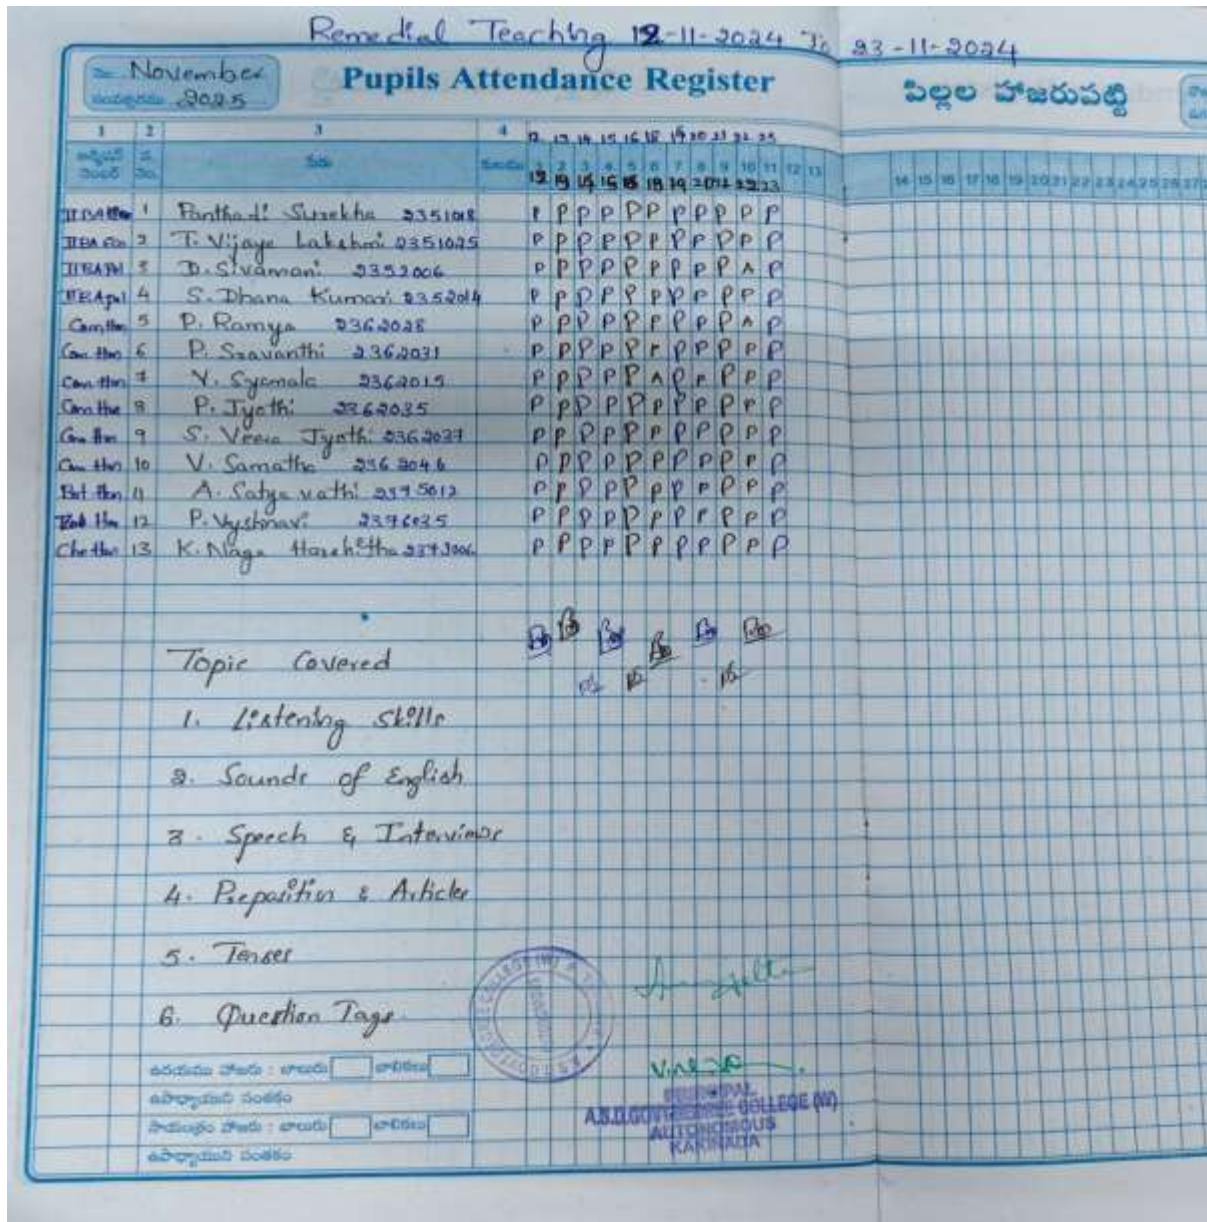 Remedial Teaching 12-11-2024 To 23-11-2024
November
2025
Pupils Attendance Register
పిల్లల హాజరుపట్టీ
1 2 3 4 12 13 14 15 16 18 19 20 21 22 23
పేరు 1 2 3 4 5 6 7 8 9 10 11 12 13 14 15 16 17 18 19 20 21 22 23 24 25 26 27
12 13 14 15 16 18 19 20 21 22 23
1 Panthadi Surekha 2351018 P P P P P P P P P P P
2 T. Vijaya Lakshmi 2351025 P P P P P P P P P P P
3 D. Sivamani 2352006 P P P P P P P P P A P
4 S. Dhana Kumari 2352014 P P P P P P P P P P P
Com Hon 5 P. Ramya 2362028 P P P P P P P P P A P
Com Hon 6 P. Sravanthi 2362031 P P P P P P P P P P P
Com Hon 7 V. Syamala 2362015 P P P P P A P P P P P
Com Hon 8 P. Jyothi 2362035 P P P P P P P P P P P
Com Hon 9 S. Veera Jyothi P P P P P P P P P P P
Com Hon 10 V. Samatha 2362046 P P P P P P P P P P P
Bot Hon 11 A. Satya vathi 2375012 P P P P P P P P P P P
12 P. Vyshnavi P P P P P P P P P P P
Che Hon 13 K. Naga P P P P P P P P P P P
Topic Covered
1. Listening Skills
2. Sounds of English
3. Speech & Interviews
4. Preposition & Articles
5. Tenses
6. Question Tags
ఉదయము హాజరు : బాలురు బాలికలు
ఉపాధ్యాయుని సంతకం
సాయంత్రం హాజరు : బాలురు బాలికలు
ఉపాధ్యాయుని సంతకం
PRINCIPAL
A.S.D.GOVT.DEGREE COLLEGE (W)
AUTONOMOUS
KAKINADA